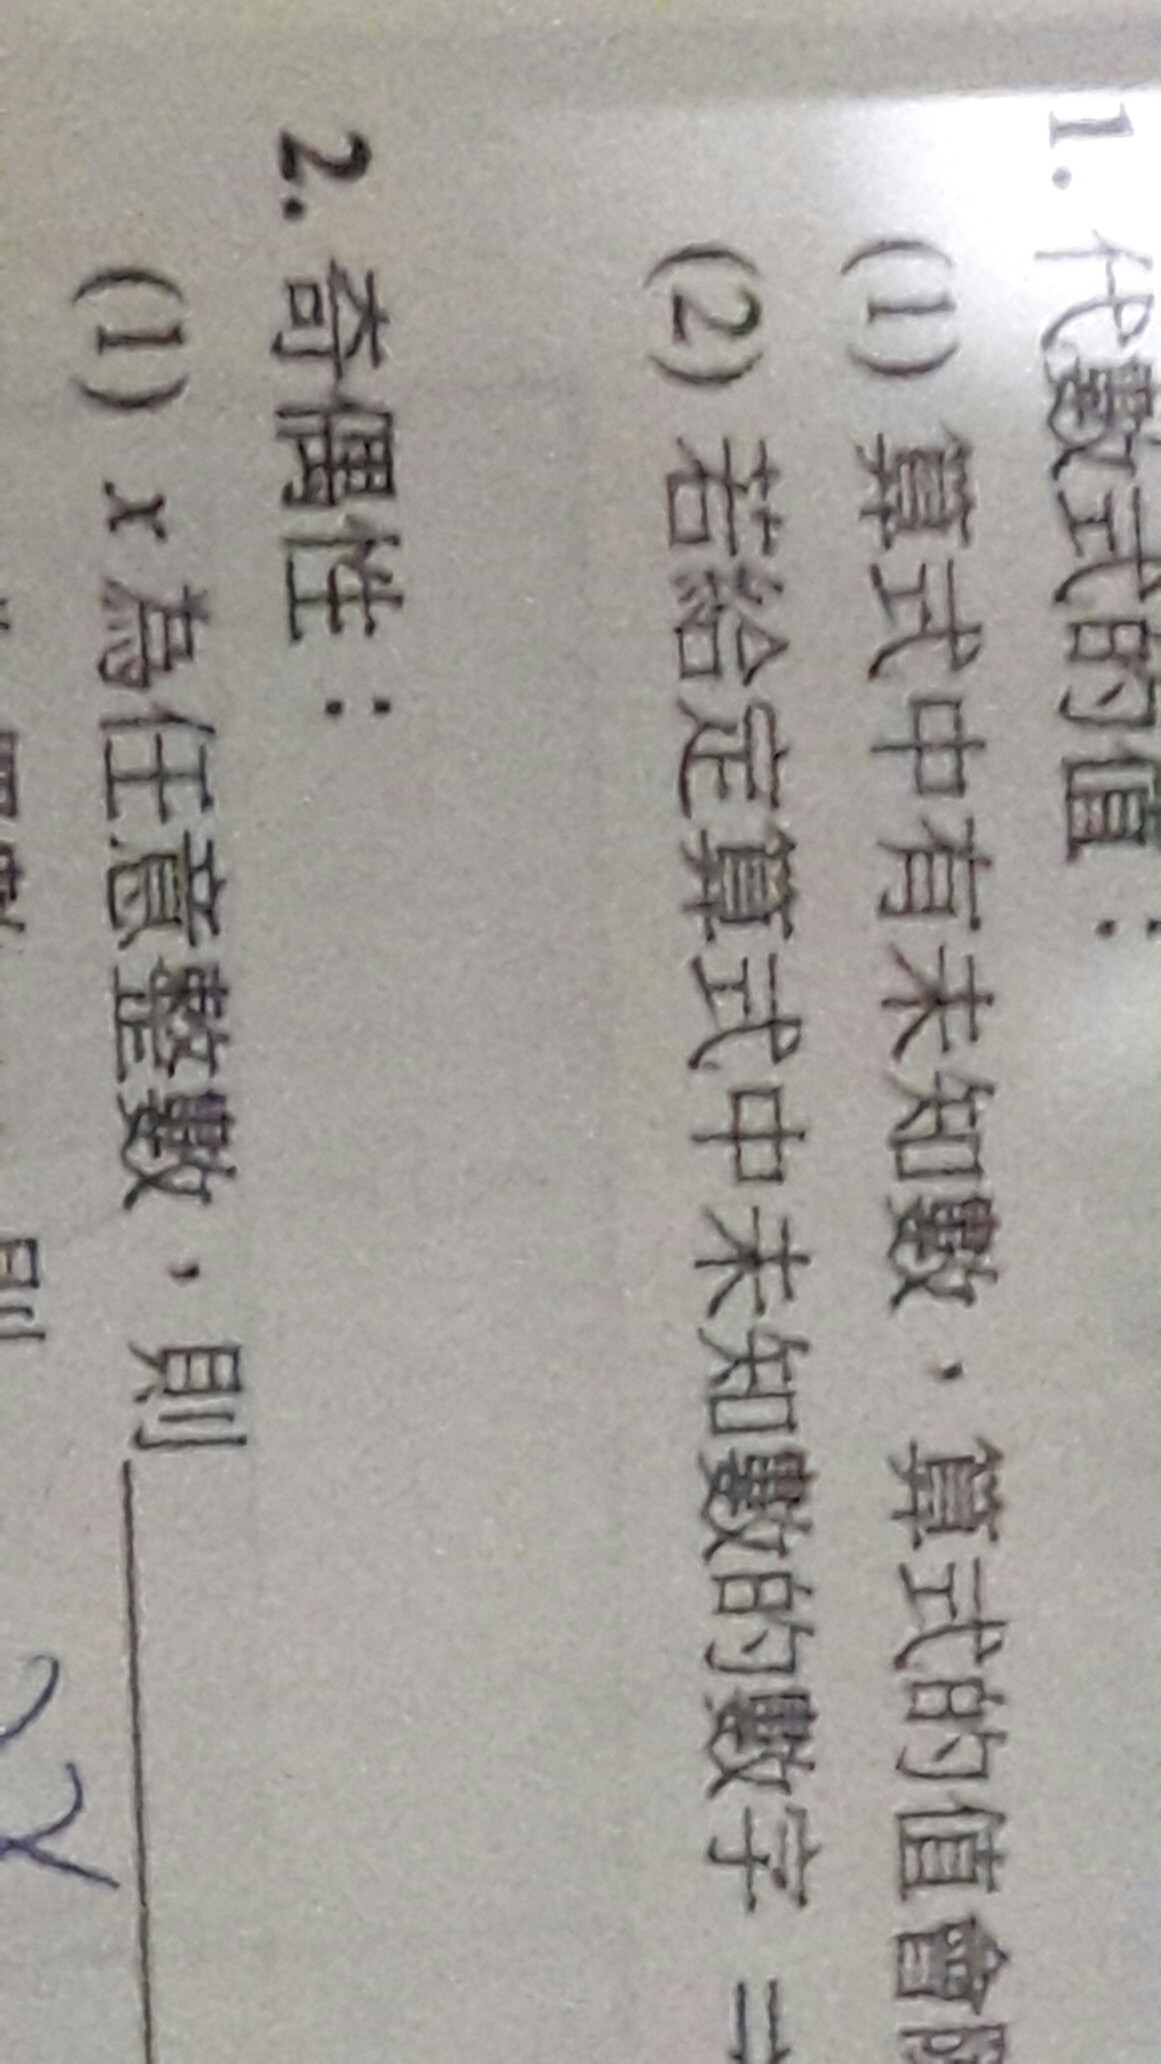 1. 代數式的值：
(1) 算式中有未知數，算式的值會
(2) 若給定算式中未知數的數字
2. 奇偶性：
(1) x 為任意整數，則
則